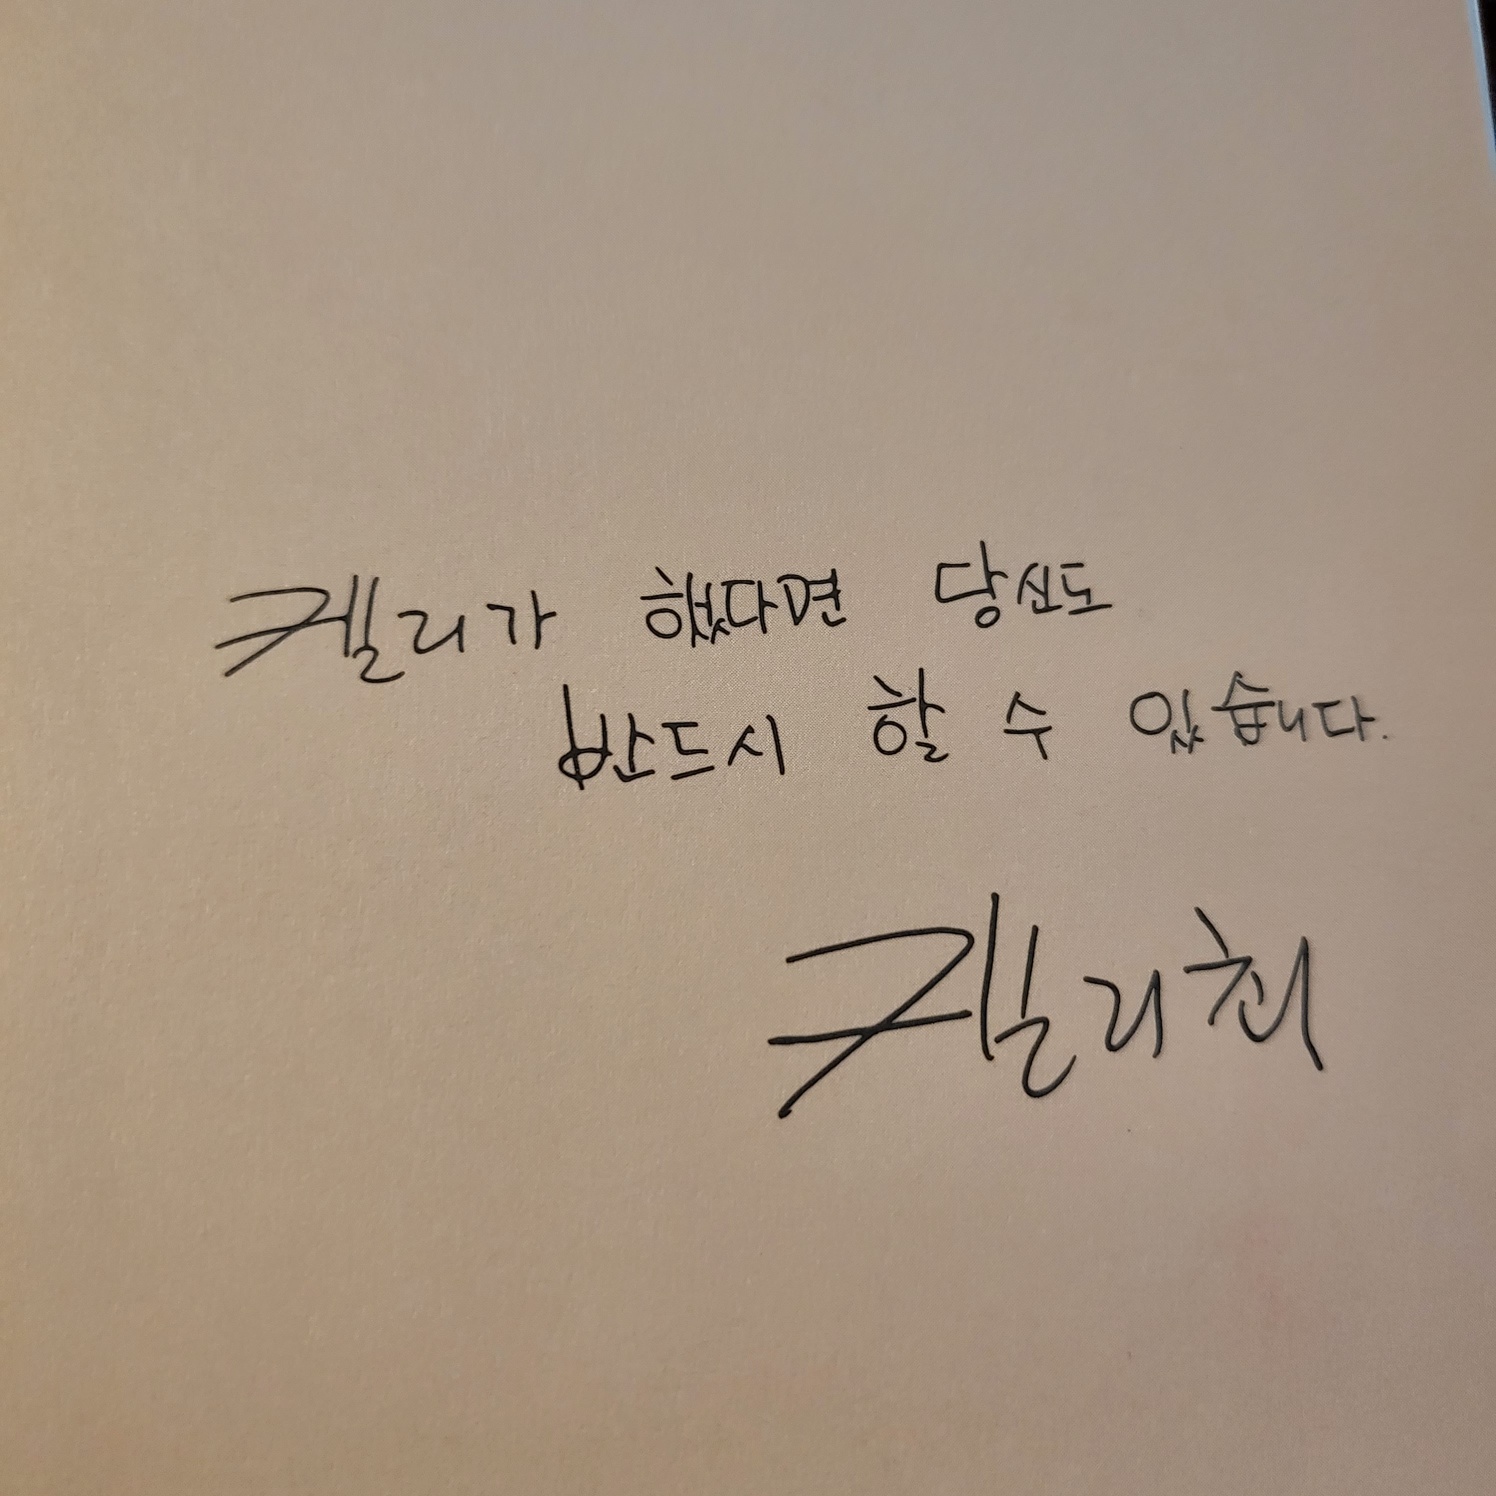 켈리가 했다면 당신도
반드시 할 수 있습니다.
켈리 최